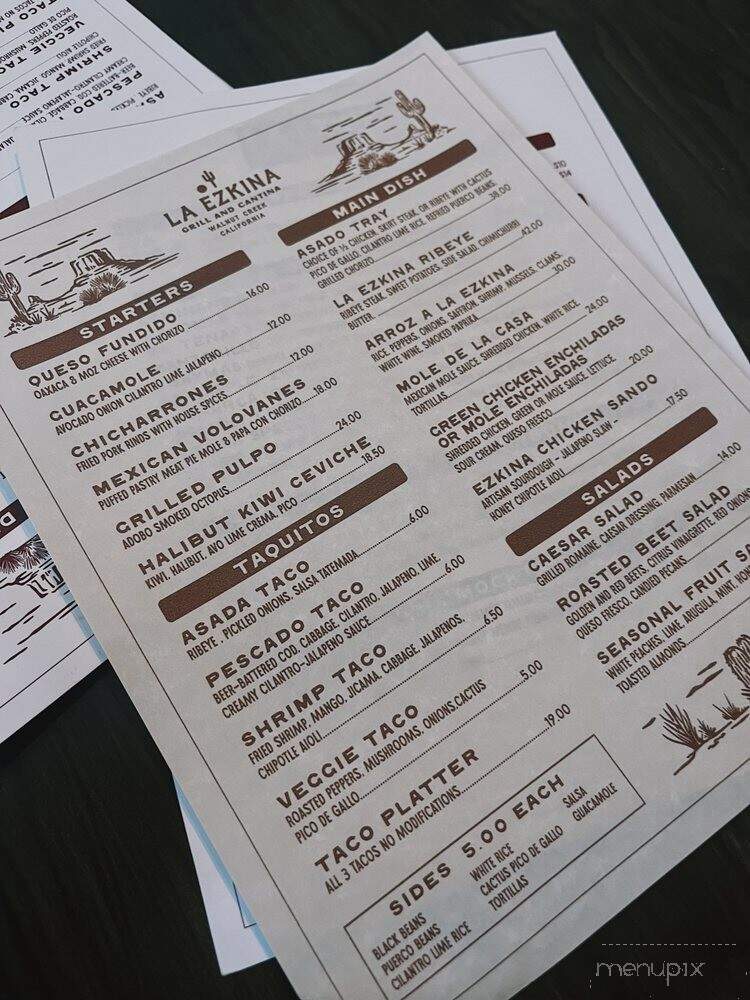 LA EZKINA
GRILL AND CANTINA
WALNUT CREEK
CALIFORNIA
STARTERS
QUESO FUNDIDO
OAXACA & MOZ CHEESE WITH CHORIZO 16.00
GUACAMOLE
AVOCADO ONION CILANTRO LIME JALAPENO 12.00
CHICHARRONES
FRIED PORK RINDS WITH HOUSE SPICES 12.00
MEXICAN VOLOVANES
PUFFED PASTRY MEAT PIE MOLE & PAPA CON CHORIZO 18.00
GRILLED PULPO
ADOBO SMOKED OCTOPUS 24.00
HALIBUT KIWI CEVICHE
KIWI, HALIBUT, AVO LIME CREMA, PICO 18.50
TAQUITOS
ASADA TACO
RIBEYE, PICKLED ONIONS, SALSA TATEMADA 6.00
PESCADO TACO
BEER-BATTERED COD, CABBAGE, CILANTRO, JALAPENO, LIME,
CREAMY CILANTRO-JALAPENO SAUCE 6.00
SHRIMP TACO
FRIED SHRIMP, MANGO, JICAMA, CABBAGE, JALAPENOS,
CHIPOTLE AIOLI 6.50
VEGGIE TACO
ROASTED PEPPERS, MUSHROOMS, ONIONS,CACTUS
PICO DE GALLO 5.00
TACO PLATTER
ALL 3 TACOS NO MODIFICATIONS 19.00
SIDES 5.00 EACH
BLACK BEANS
PUERCO BEANS
CILANTRO LIME RICE
WHITE RICE
CACTUS PICO DE GALLO
TORTILLAS
SALSA
GUACAMOLE
MAIN DISH
ASADO TRAY
CHOICE OF ½ CHICKEN, SKIRT STEAK, OR RIBEYE WITH CACTUS
PICO DE GALLO, CILANTRO LIME RICE, REFRIED PUERCO BEANS,
GRILLED CHORIZO 38.00
LA EZKINA RIBEYE
RIBEYE STEAK, SWEET POTATOES, SIDE SALAD, CHIMICHURRI
BUTTER 42.00
ARROZ A LA EZKINA
RICE PEPPERS, ONIONS, SAFFRON, SHRIMP, MUSSELS, CLAMS,
WHITE WINE, SMOKED PAPRIKA 30.00
MOLE DE LA CASA
MEXICAN MOLE SAUCE, SHREDDED CHICKEN, WHITE RICE
TORTILLAS 24.00
GREEN CHICKEN ENCHILADAS
OR MOLE ENCHILADAS
SHREDDED CHICKEN, GREEN OR MOLE SAUCE, LETTUCE
SOUR CREAM, QUESO FRESCO 20.00
EZKINA CHICKEN SANDO
ARTISAN SOURDOUGH - JALAPENO SLAW -
HONEY CHIPOTLE AIOLI 17.50
SALADS
CAESAR SALAD
GRILLED ROMAINE, CAESAR DRESSING, PARMESAN 14.00
ROASTED BEET SALAD
GOLDEN AND RED BEETS, CITRUS VINAIGRETTE, RED ONIONS
QUESO FRESCO, CANDIED PECANS
SEASONAL FRUIT SA
WHITE PEACHES, LIME, ARUGULA, MINT, HONEY
TOASTED ALMONDS
menupix